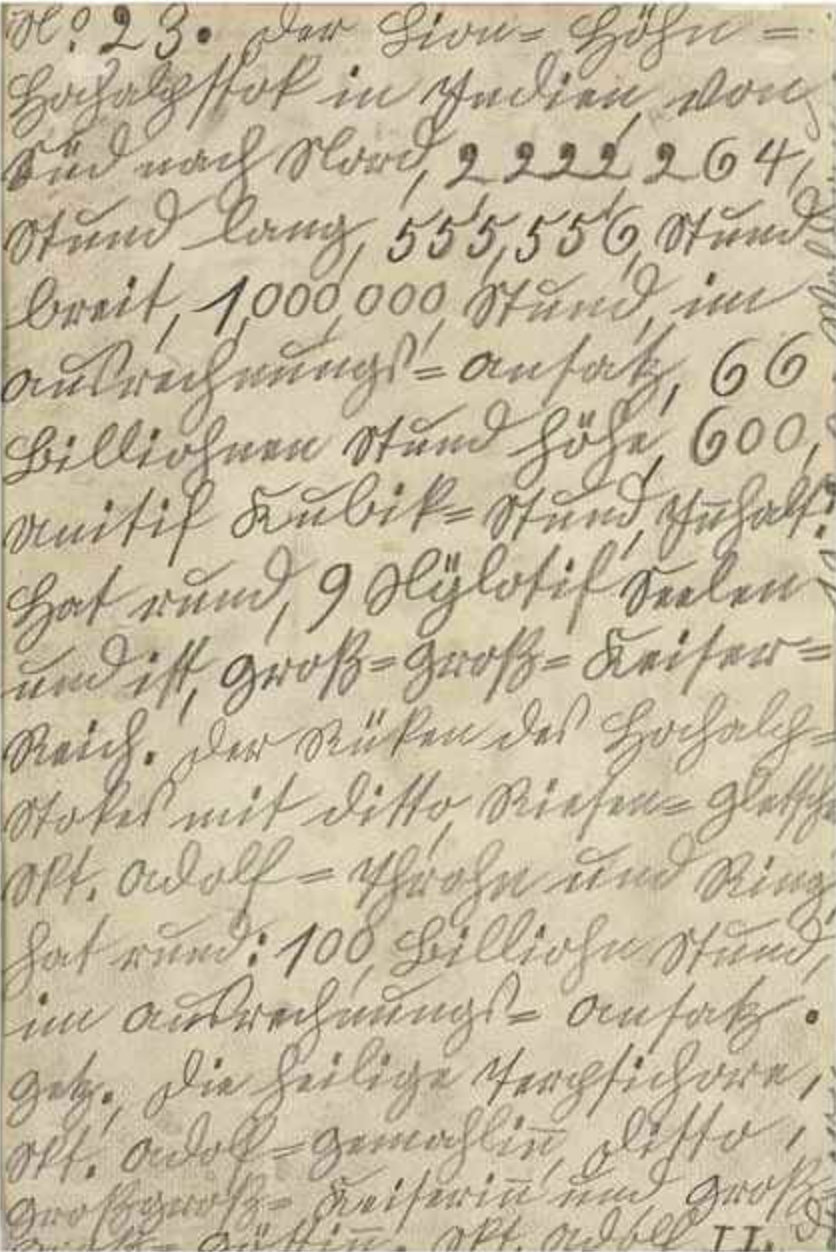 No. 23. Der Lion= Höhn =
Hochalpstok in Indien, von
Süd nach Nord, 2222,264,
Stund lang, 555,556, Stund
breit, 1,000,000 Stund, im
Ausrechnungs= Ansatz, 66
Billiohnen Stund Höhe, 600,
Unitif Kubik= Stund, Inhalt.
Hat rund, 9 Nÿlotif Seelen
und ist, Groß=Groß= Keiser=
Reich. Der Rüken des Hochalp=
Stokes mit ditto, Riesen=
Skt. Adolf = Throhn und Ring
hat rund: 100, Billiohn Stund,
im Ausrechnungs= Ansatz.
Getz., Die heilige Terpsichore,
Skt. Adolf=Gemahlin̄, ditto,
Großgroß= Keiserin̄ und Groß=
Göttin̄. Skt. Adolf II.